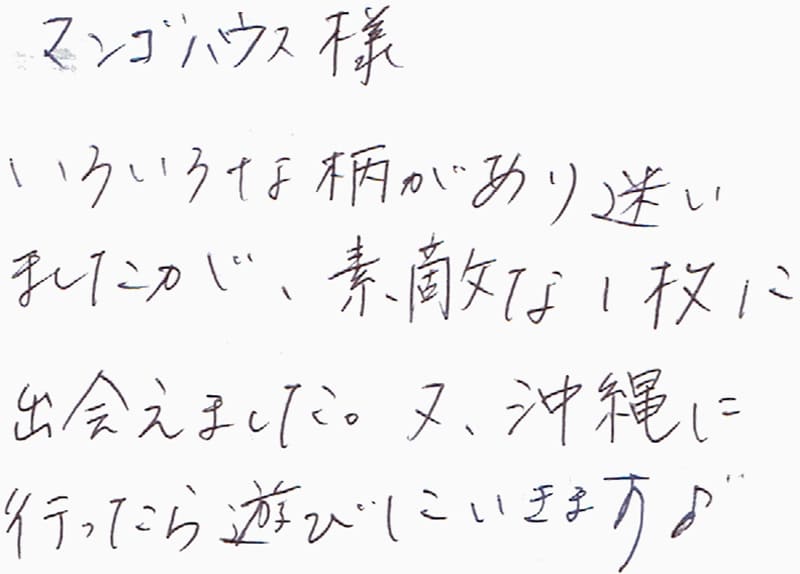 マンゴハウス様
いろいろな柄があり迷い
ましたが、素敵な1枚に
出会えました。又、沖縄に
行ったら遊びにいきます♪